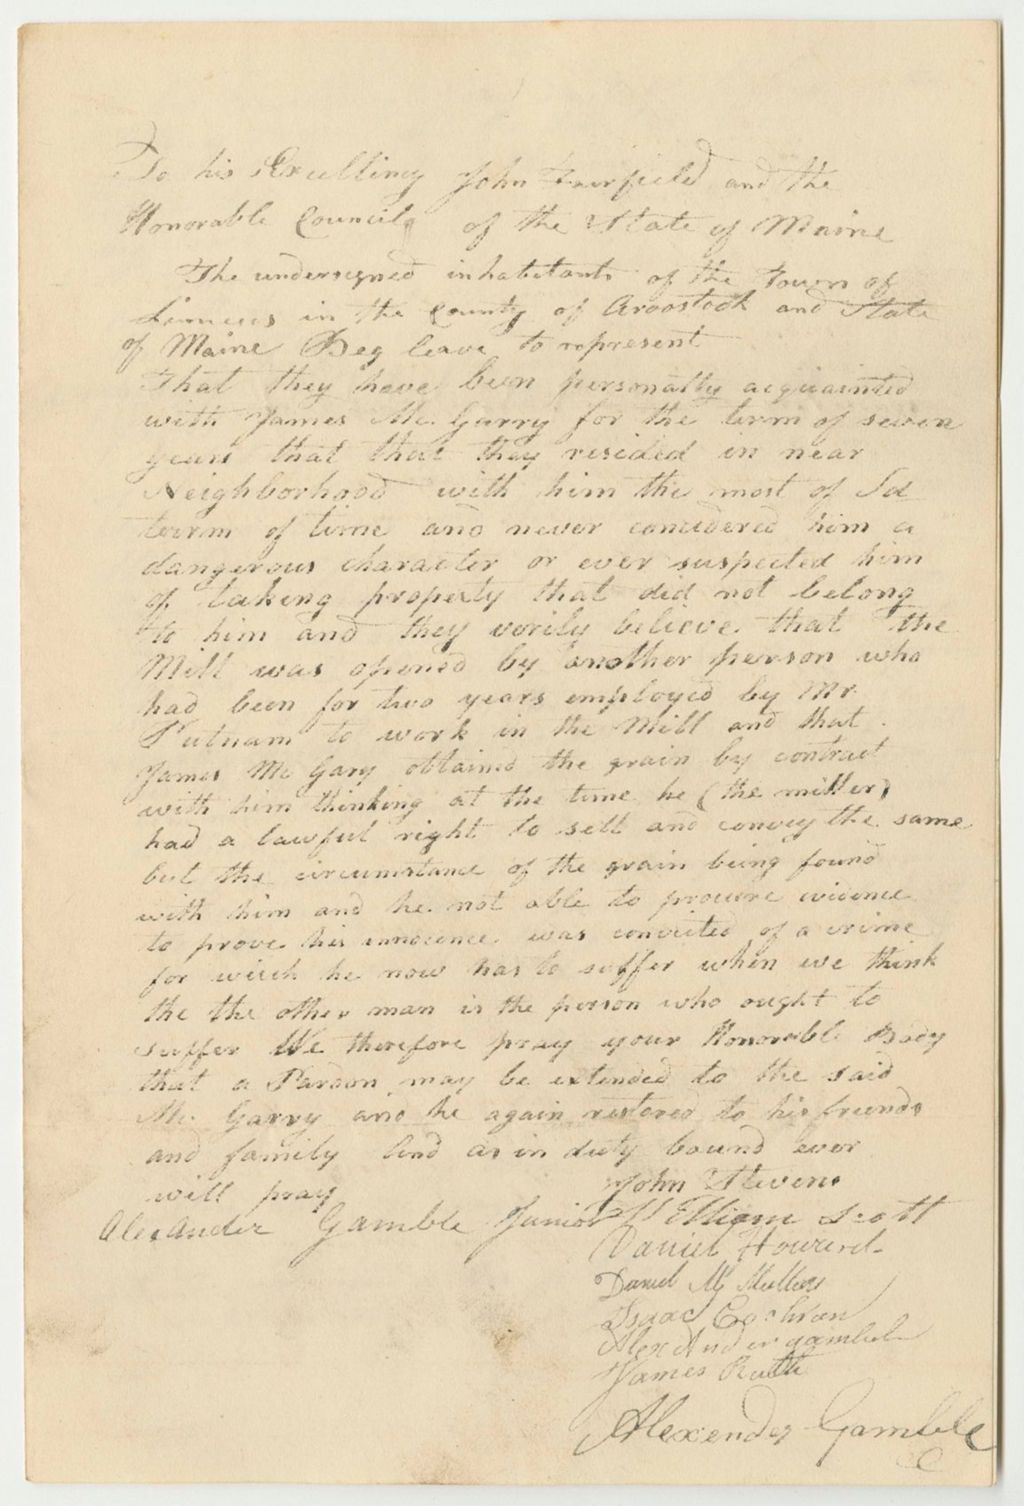 To his Excellency John Fairfield and the
Honorable Council of the State of Maine
The undersigned inhabitants of the Town of
Linneus in the County of Aroostook and State
of Maine Beg leave to represent
That they have been personally acquainted
with James Mc. Garry for the term of seven
years that that they resided in near
Neighborhood with him the most of Sd
term of time and never concidered him a
dangerous character or ever suspected him
of taking property that did not belong
to him and they verily believe that the
Mill was opened by another person who
had been for two years employed by Mr.
Putnam to work in the Mill and that
James Mc Gary obtained the grain by contract
with him thinking at the time he (the miller)
had a lawful right to sell and convey the same
but the circumstance of the grain being found
with him and he not able to procure evidence
to prove his innocence was convicted of a crime
for wich he now has to suffer when we think
the the other man is the person who ought to
suffer We therefore pray your Honorable Body
that a Pardon may be extended to the said
Mc. Garry and he again restored to his friends
and family And as in duty bound ever
will pray
John Stevens
Alexander Gamble Junior William Scott
Daniel Howard
Daniel Mc
Isaac Cochran
Alexander gambel
James Ruth
Alexender Gamble